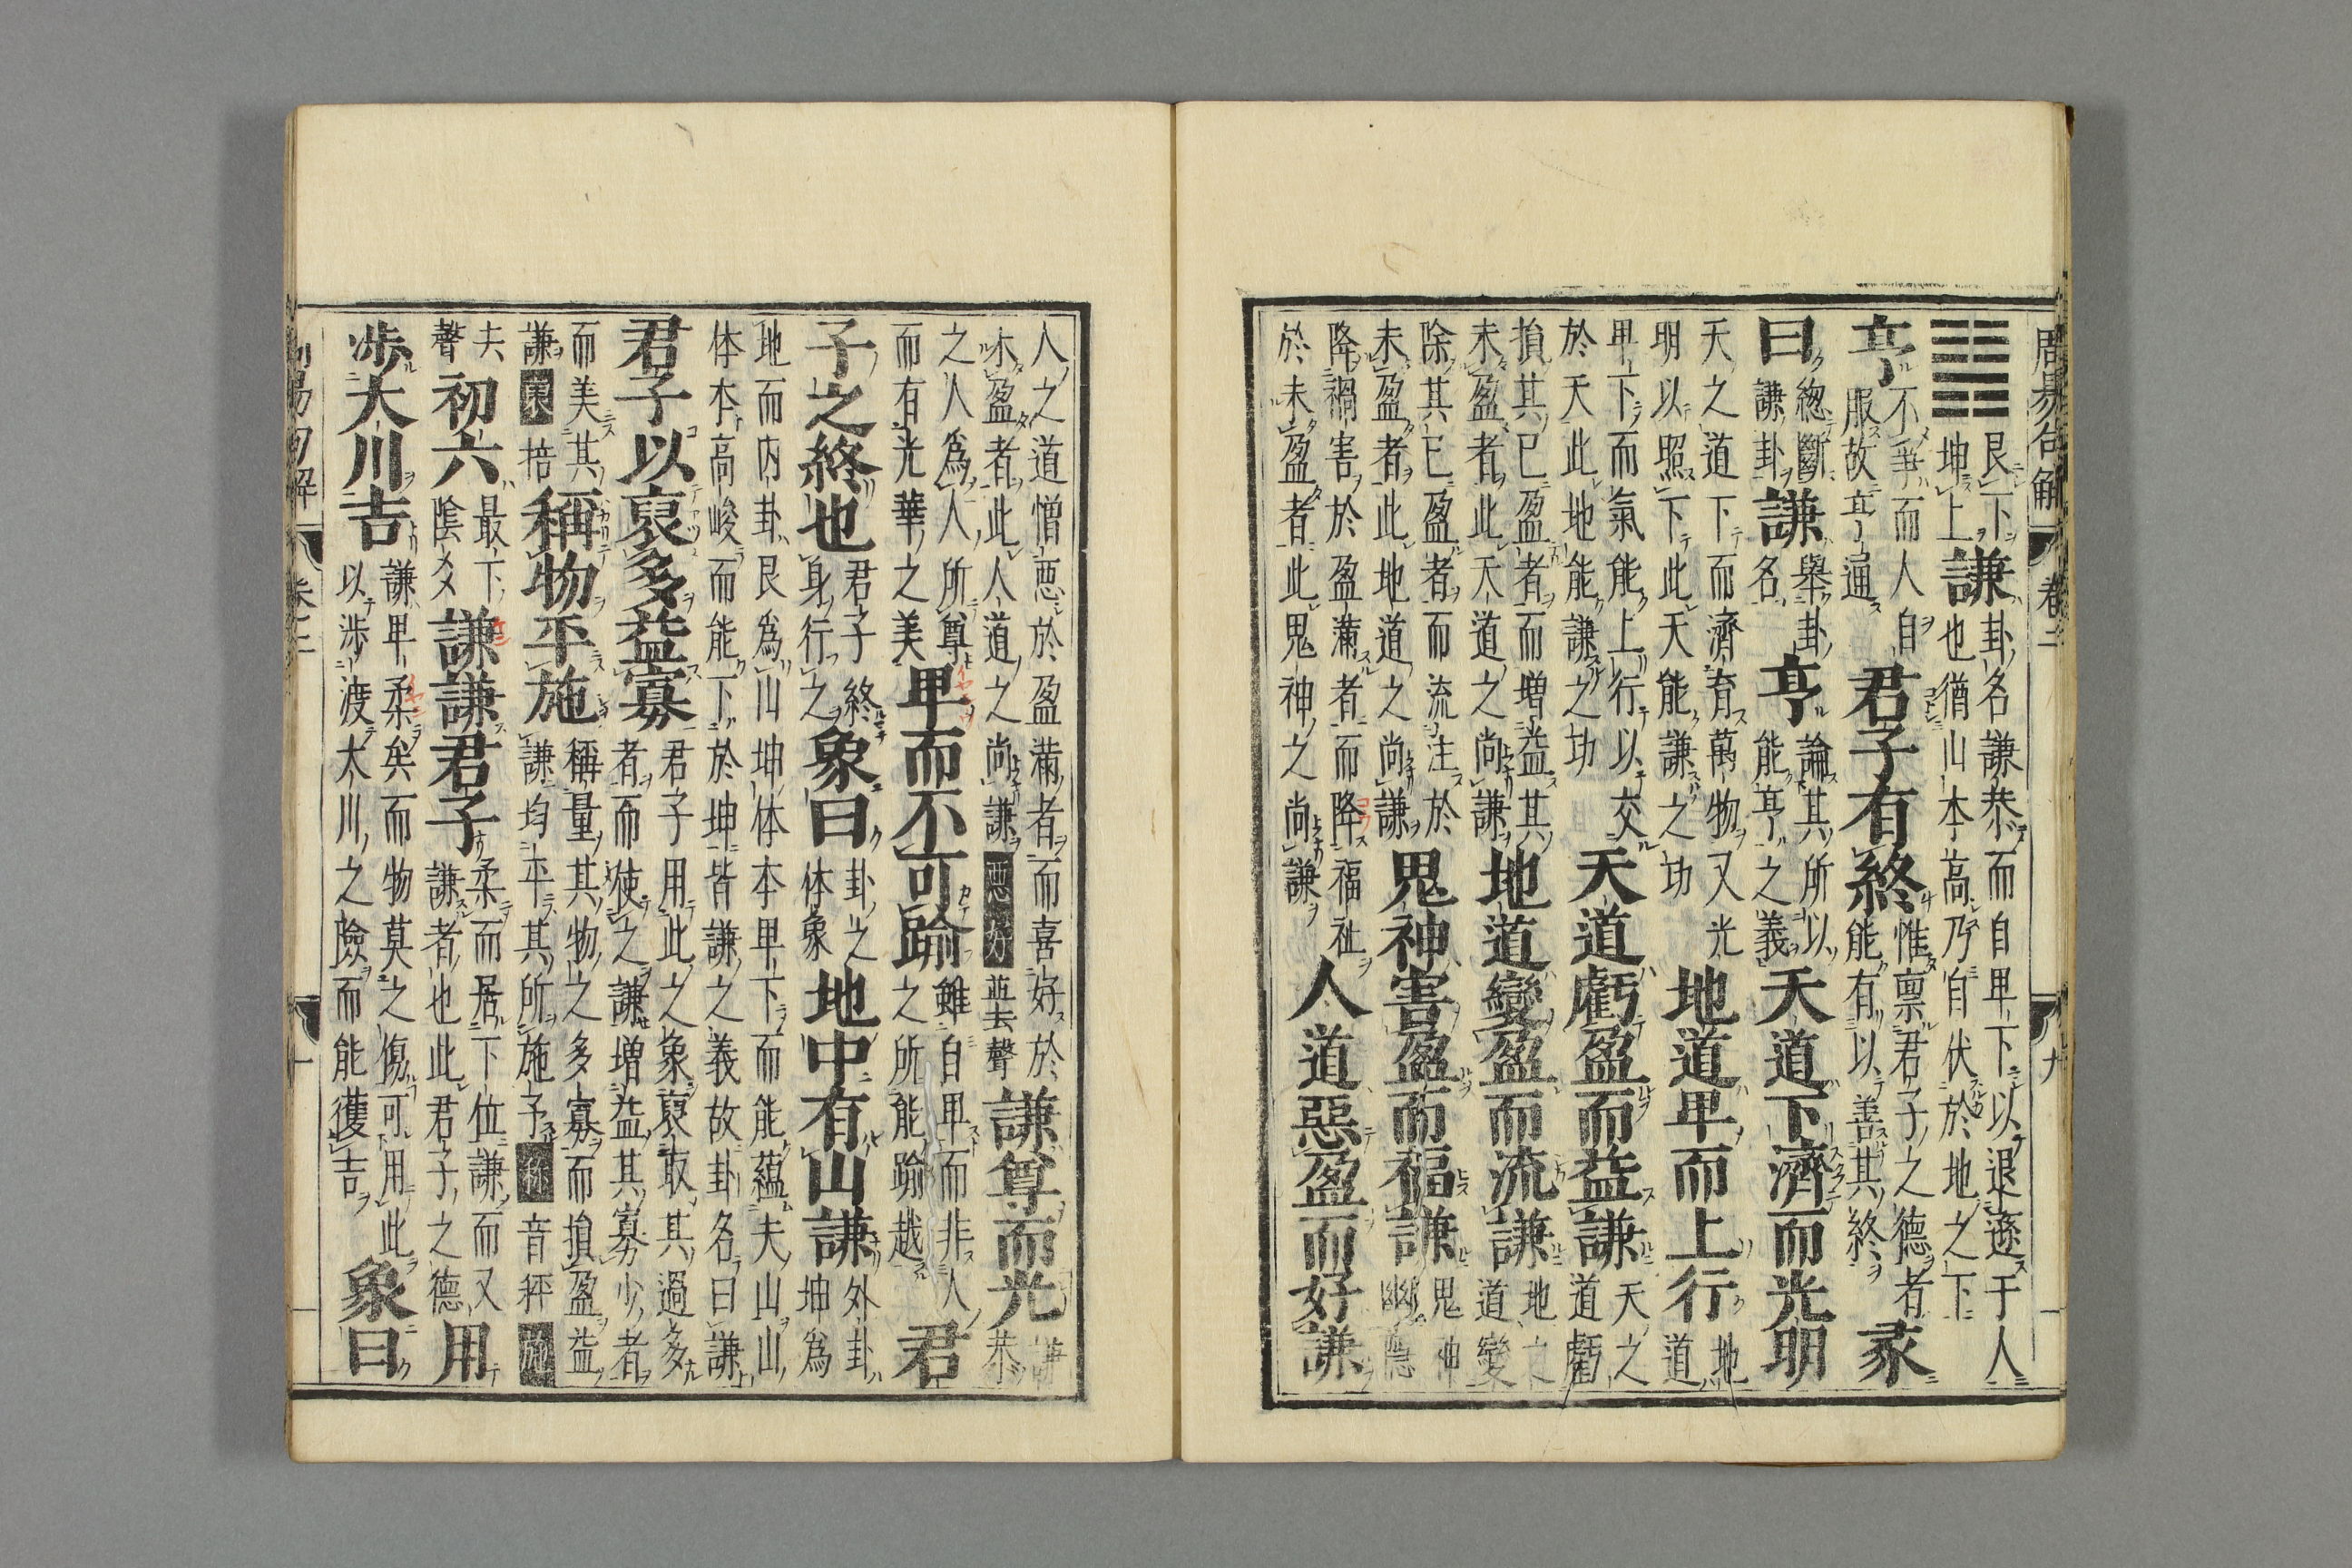 周易句解
卷二
九
䷎艮下坤上謙卦名謙恭而自卑下以退遜于人也猶山本高乃自伏於地之下
亨不爭而人自服故亨通君子有終惟禀君子之德者能有以善其終彖
曰總斷謙卦謙舉卦名亨論其所以能亨之義天道下濟而光明
天之道下而濟育萬物又光明以照下此天能謙之功地道卑而上行地道
卑下而氣能上行以交於天此地能謙之功天道虧盈而益謙天之道虧
損其已盈者而增益其未盈者此天道之尚謙地道變盈而流謙地之道變
除其已盈者而流注於未盈者此地道之尚謙鬼神害盈而福謙鬼神幽隱
降禍害於盈滿者而降福祉於未盈者此鬼神之尚謙人道惡盈而好謙
人之道憎惡於盈滿者而喜好於未盈者此人道之尚謙惡好並去聲謙尊而光謙恭
之人爲人所尊而有光華之美卑而不可踰雖自卑而非人之所能踰越君
子之終也君子終身行之象曰卦之体象地中有山謙外卦坤爲
地而内卦艮爲山坤体本卑下而能蘊夫山山体本高峻而能下於坤皆謙之義故卦名曰謙
君子以裒多益寡君子用此之象裒取其過多者而使之謙增益其寡少者
而美其謙裒掊稱物平施稱量其物之多寡而損盈益謙均平其所施予称音秤施
去聲初六最下陰爻謙謙君子柔而居下位謙而又謙者也此君子之德用
涉大川吉謙卑柔矣而物莫之傷可用此以涉渡大川之險而能獲吉象曰
卷二